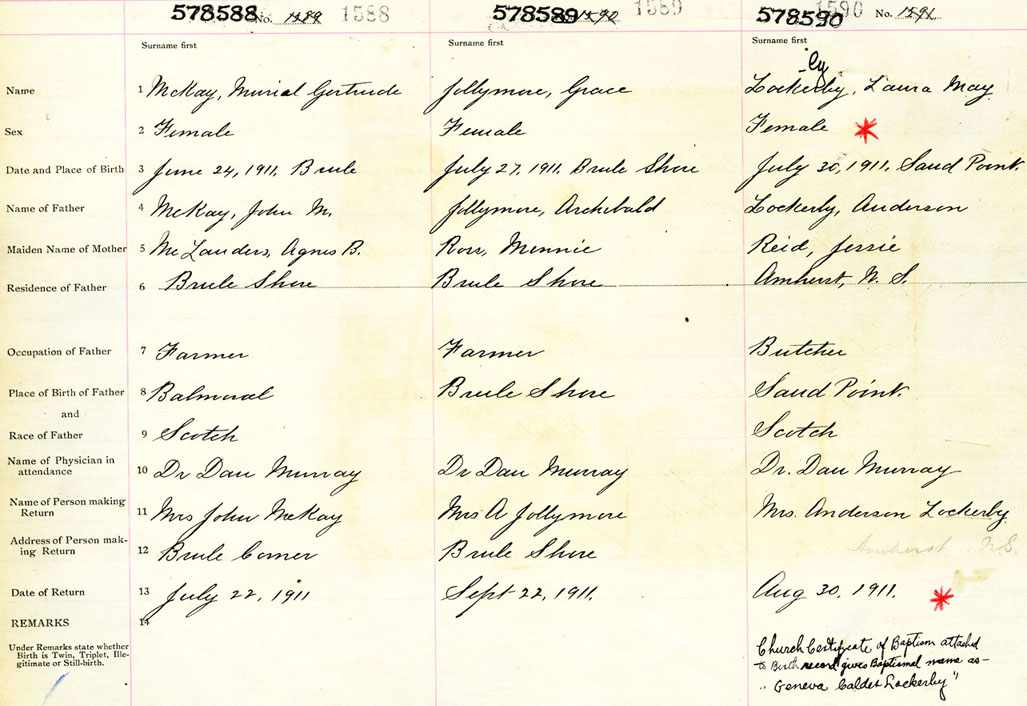 578588 No. 1589 1588 578589 1590 1589 578590 1590 No. 1591
Surname first Surname first Surname first
by
Name 1 McKay, Muriel Gertrude Jollymore, Grace Lockerby, Laura May
Sex 2 Female Female Female
Date and Place of Birth 3 June 24, 1911, Brule July 27, 1911. Brule Shore July 30, 1911. Sand Point.
Name of Father 4 McKay, John M. Jollymore, Archibald Lockerby, Anderson
Maiden Name of Mother 5 McLanders, Agnes B. Ross, Minnie Reid, Jessie
Residence of Father 6 Brule Shore Brule Shore Amherst, N. S.
Occupation of Father 7 Farmer Farmer Butcher
Place of Birth of Father 8 Balmoral Brule Shore Sand Point.
and
Race of Father 9 Scotch Scotch
Name of Physician in
attendance 10 Dr Dan Murray Dr Dan Murray Dr. Dan Murray
Name of Person making
Return 11 Mrs John McKay Mrs A Jollymore Mrs. Anderson Lockerby.
Address of Person mak-
ing Return 12 Brule Corner Brule Shore Amherst N.S.
Date of Return 13 July 22, 1911 Sept 22, 1911. Aug 30, 1911.
REMARKS 14
Under Remarks state whether
Birth is Twin, Triplet, Ille-
gitimate or Still-birth.
Church Certificate of Baptism attached
to Birth record gives Baptismal name as -
"Geneva Calder Lockerby"